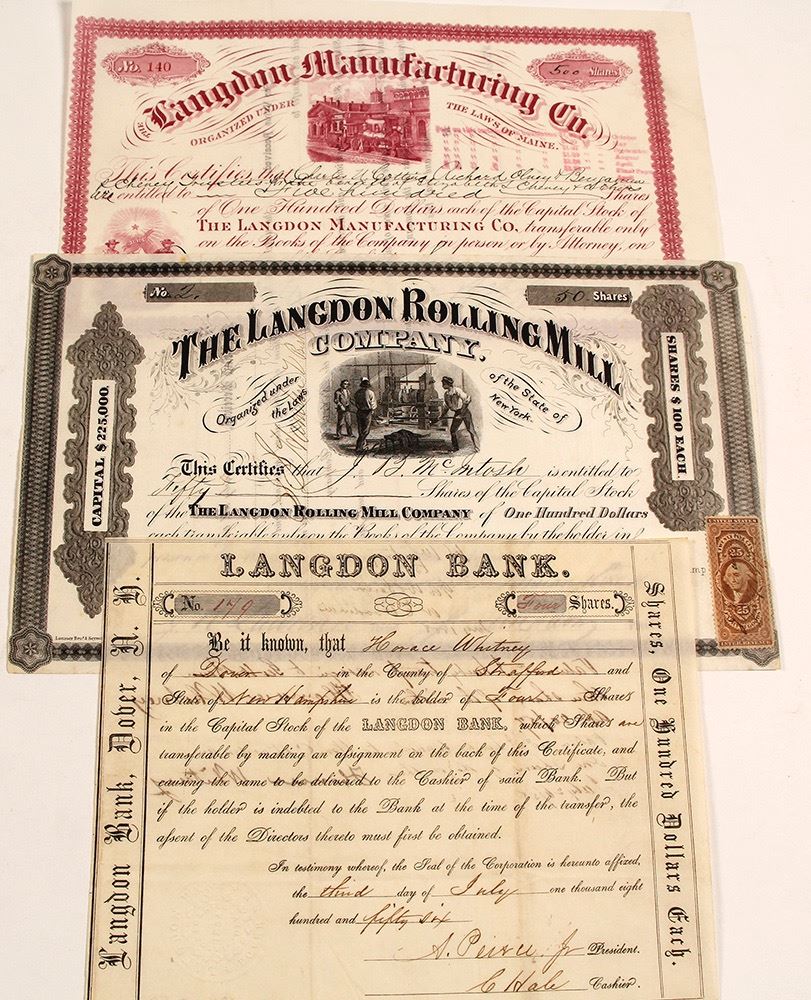 No. 140
500 Shares
THE Langdon Manufacturing Co.
ORGANIZED UNDER THE LAWS OF MAINE.
This Certifies that Charles U. Cotting, Richard Olney & Benjamin
P. Cheney Trustees under the of Elizabeth S Cheney &
are entitled to Five Hundred Shares
of One Hundred Dollars each of the Capital Stock of
THE LANGDON MANUFACTURING CO, transferable only
on the Books of the Company in person or by Attorney, on
No. 2.
50 Shares
THE LANGDON ROLLING MILL
COMPANY.
Organized under the Laws
of the State of New York.
CAPITAL $225,000.
SHARES $100 EACH.
This Certifies that J. B. McIntosh is entitled to
Fifty Shares of the Capital Stock
of the THE LANGDON ROLLING MILL COMPANY of One Hundred Dollars
each transferable only on the Books of the Company by the holder in
UNITED STATES
25
25
LANGDON BANK.
No. 179
Four Shares.
Langdon Bank, Dover, N. H.
Shares, One Hundred Dollars Each.
Be it known, that Horace Whitney
of Dover in the County of Strafford and
State of New Hampshire is the holder of Four Shares
in the Capital Stock of the LANGDON BANK, which Shares are
transferable by making an assignment on the back of this Certificate, and
causing the same to be delivered to the Cashier of said Bank. But
if the holder is indebted to the Bank at the time of the transfer, the
assent of the Directors thereto must first be obtained.
In testimony whereof, the Seal of the Corporation is hereunto affixed,
the third day of July one thousand eight
hundred and fifty six
A. Peirce Jr President.
C Hale Cashier.